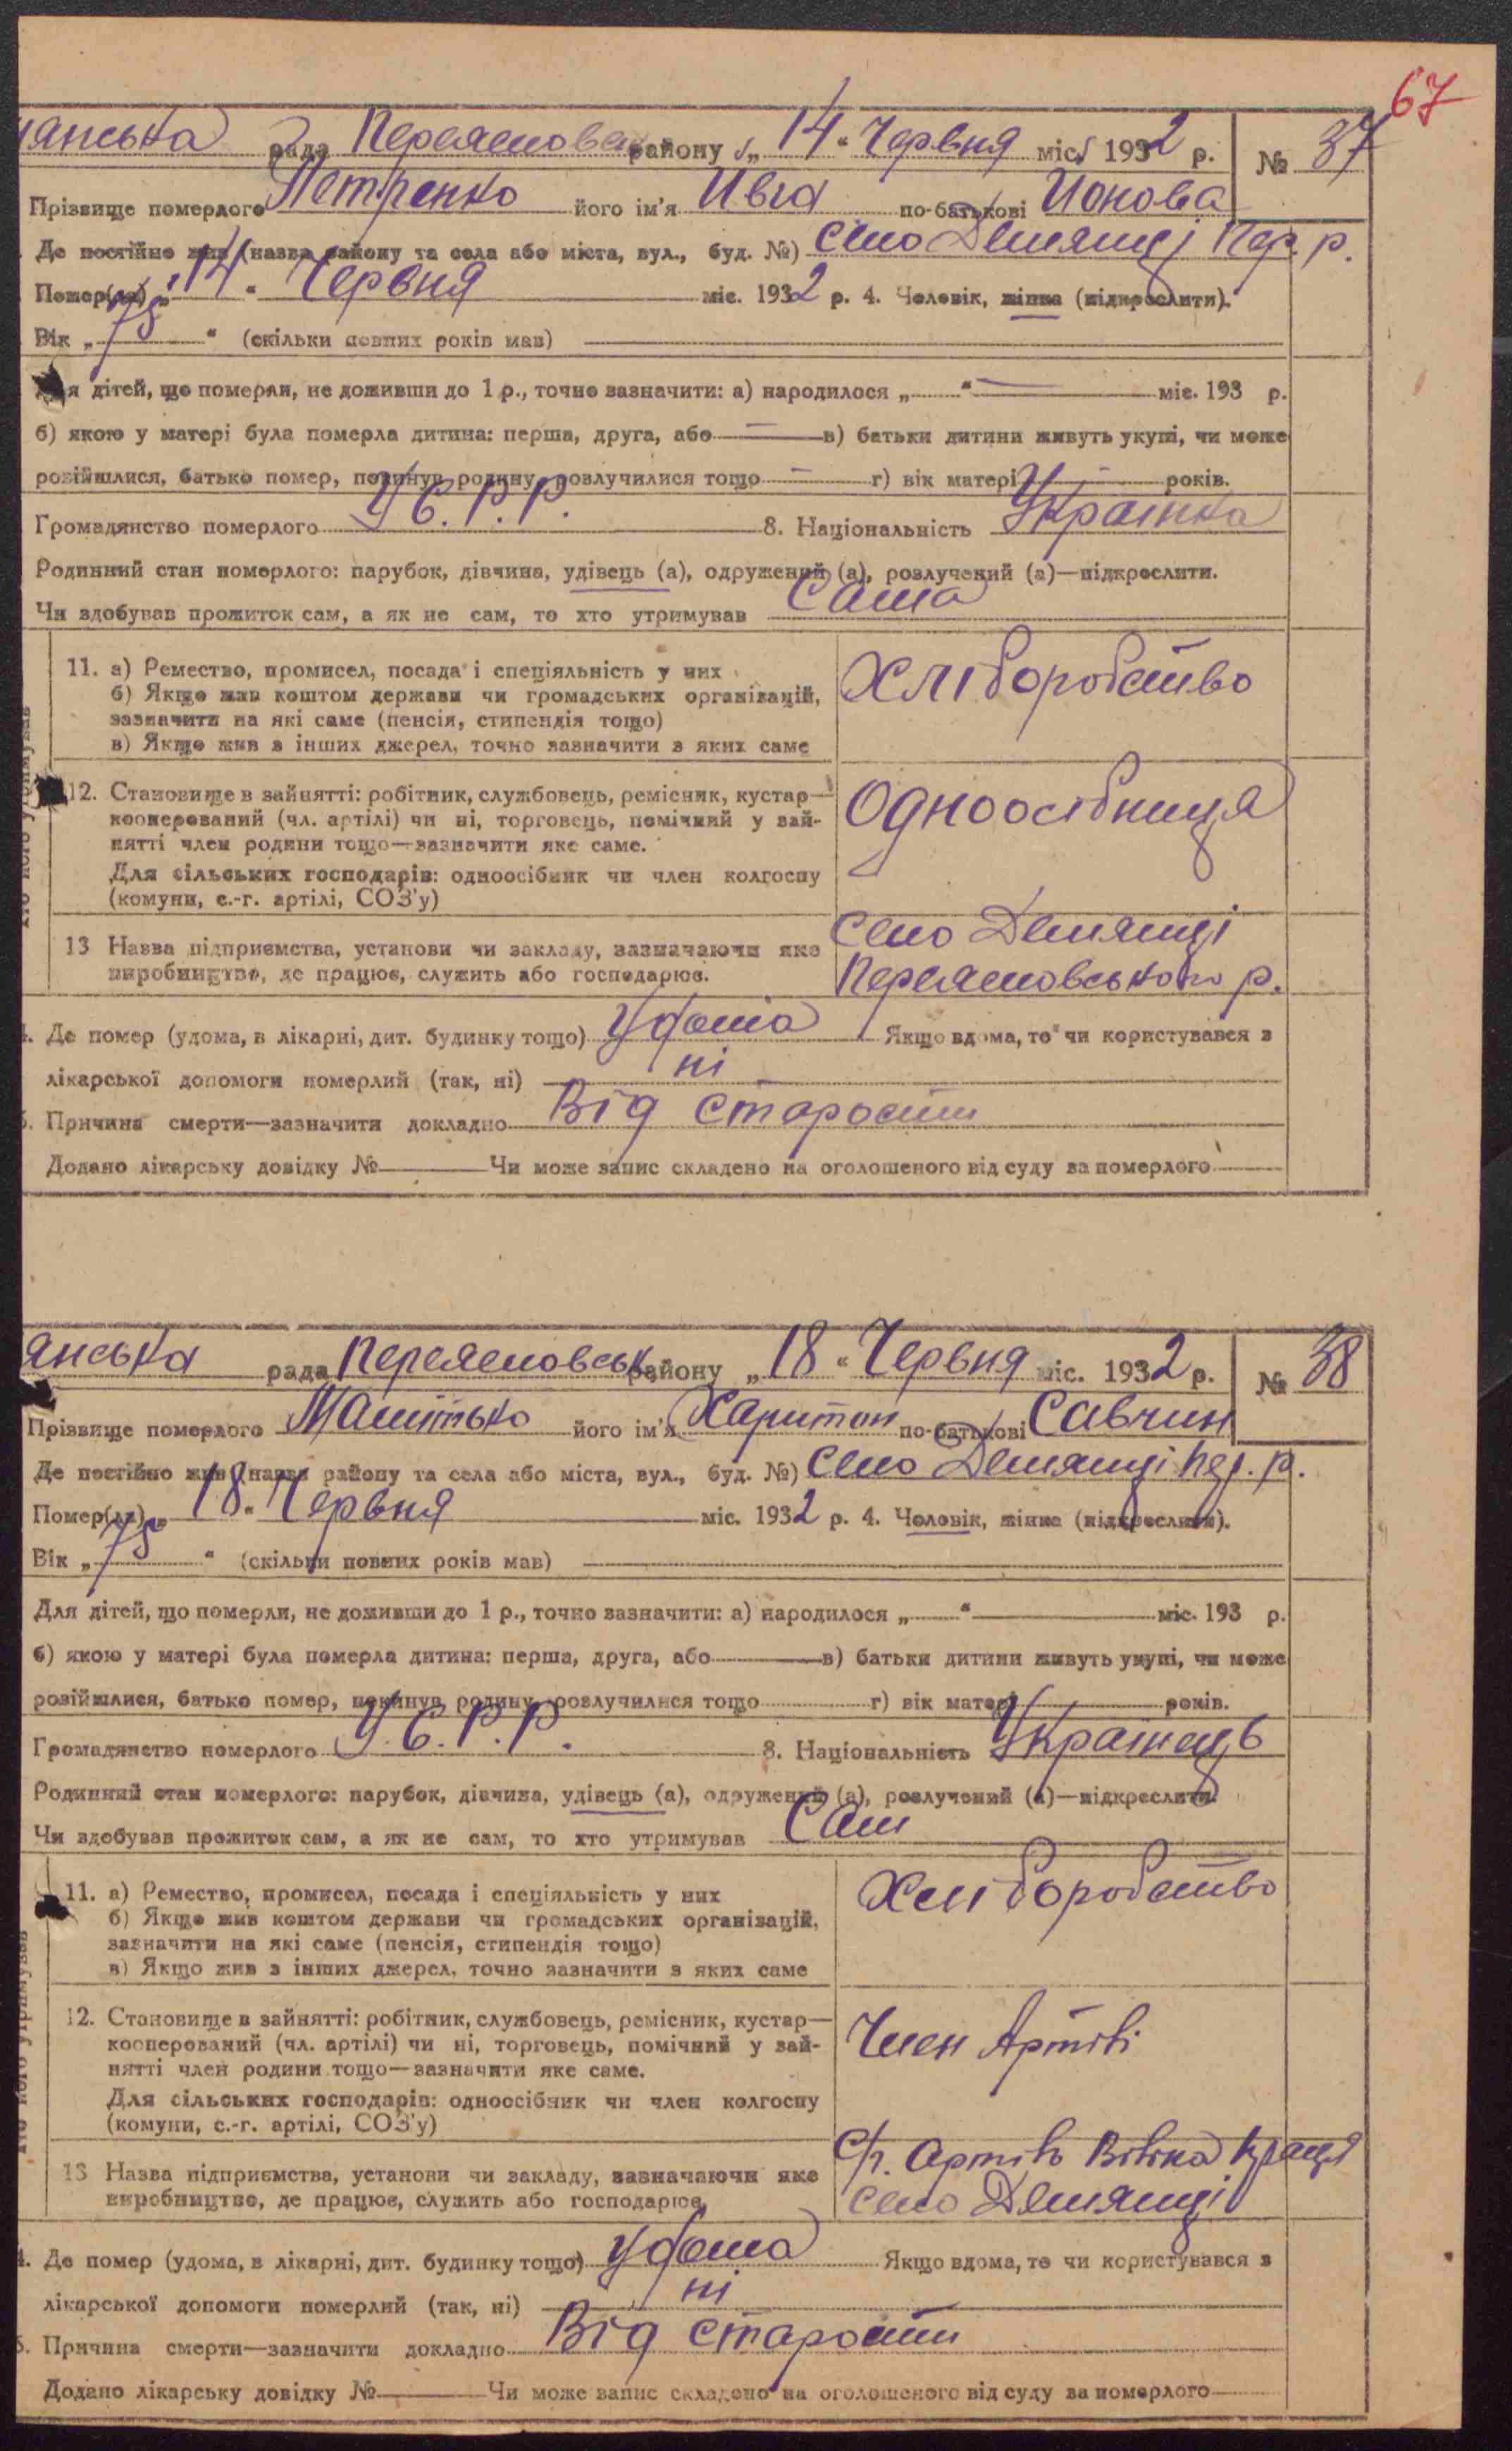 67
янська рада Переяславськ району „14“ Червня міс. 1932 р. № 37
Прізвище померлого Петренко його ім'я Ивга по-батькові Ионова
Де постійно жив (назва району та села або міста, вул., буд. №) село Демянці Пер. р.
Помер(ла) „14“ Червня міс. 1932 р. 4. Чоловік, жінка (підкреслити).
Вік „75“ (скільки повних років мав)
Для дітей, що померли, не доживши до 1 р., точно зазначити: а) народилося „ “ міс. 193 р.
б) якою у матері була померла дитина: перша, друга, або в) батьки дитини живуть укупі, чи може
розійшлися, батько помер, покинув родину, розлучилися тощо г) вік матері років.
Громадянство померлого У.С.Р.Р. 8. Національність Українка
Родинний стан померлого: парубок, дівчина, удівець (а), одружений (а), розлучений (а)—підкреслити.
Чи здобував прожиток сам, а як не сам, то хто утримував Сама
11. а) Ремество, промисел, посада і спеціяльність у них Хліборобство
б) Якщо жив коштом держави чи громадських організацій,
зазначити на які саме (пенсія, стипендія тощо)
в) Якщо жив з інших джерел, точно зазначити з яких саме
12. Становище в зайнятті: робітник, службовець, ремісник, кустар— Одноосібниця
кооперований (чл. артілі) чи ні, торговець, помічний у зай-
нятті член родини тощо—зазначити яке саме.
Для сільських господарів: одноосібник чи член колгоспу
(комуни, с.-г. артілі, СОЗ'у)
13 Назва підприємства, установи чи закладу, зазначаючи яке село Демянці
виробництво, де працює, служить або господарює. Переяславського р.
Де помер (удома, в лікарні, дит. будинку тощо) Удома Якщо вдома, то чи користувався з
лікарської допомоги померлий (так, ні) ні
Причина смерти—зазначити докладно Від старости
Додано лікарську довідку № Чи може запис складено на оголошеного від суду за померлого
янська рада Переяславськ району „18“ Червня міс. 1932 р. № 38
Прізвище померлого його ім'я Харитон по-батькові Савчин
Де постійно жив (назва району та села або міста, вул., буд. №) село Демянці Пер. р.
Помер(ла) „18“ Червня міс. 1932 р. 4. Чоловік, жінка (підкреслити).
Вік „75“ (скільки повних років мав)
Для дітей, що померли, не доживши до 1 р., точно зазначити: а) народилося „ “ міс. 193 р.
б) якою у матері була померла дитина: перша, друга, або в) батьки дитини живуть укупі, чи може
розійшлися, батько помер, покинув родину, розлучилися тощо г) вік матері років.
Громадянство померлого У.С.Р.Р. 8. Національність Українець
Родинний стан померлого: парубок, дівчина, удівець (а), одружений (а), розлучений (а)—підкреслити.
Чи здобував прожиток сам, а як не сам, то хто утримував Сам
11. а) Ремество, промисел, посада і спеціяльність у них Хліборобство
б) Якщо жив коштом держави чи громадських організацій,
зазначити на які саме (пенсія, стипендія тощо)
в) Якщо жив з інших джерел, точно зазначити з яких саме
12. Становище в зайнятті: робітник, службовець, ремісник, кустар— Член Артілі
кооперований (чл. артілі) чи ні, торговець, помічний у зай-
нятті член родини тощо—зазначити яке саме.
Для сільських господарів: одноосібник чи член колгоспу
(комуни, с.-г. артілі, СОЗ'у)
13 Назва підприємства, установи чи закладу, зазначаючи яке с/г. Артіль Вільна праця
виробництво, де працює, служить або господарює. село Демянці
Де помер (удома, в лікарні, дит. будинку тощо) Удома Якщо вдома, то чи користувався з
лікарської допомоги померлий (так, ні) ні
Причина смерти—зазначити докладно Від старости
Додано лікарську довідку № Чи може запис складено на оголошеного від суду за померлого